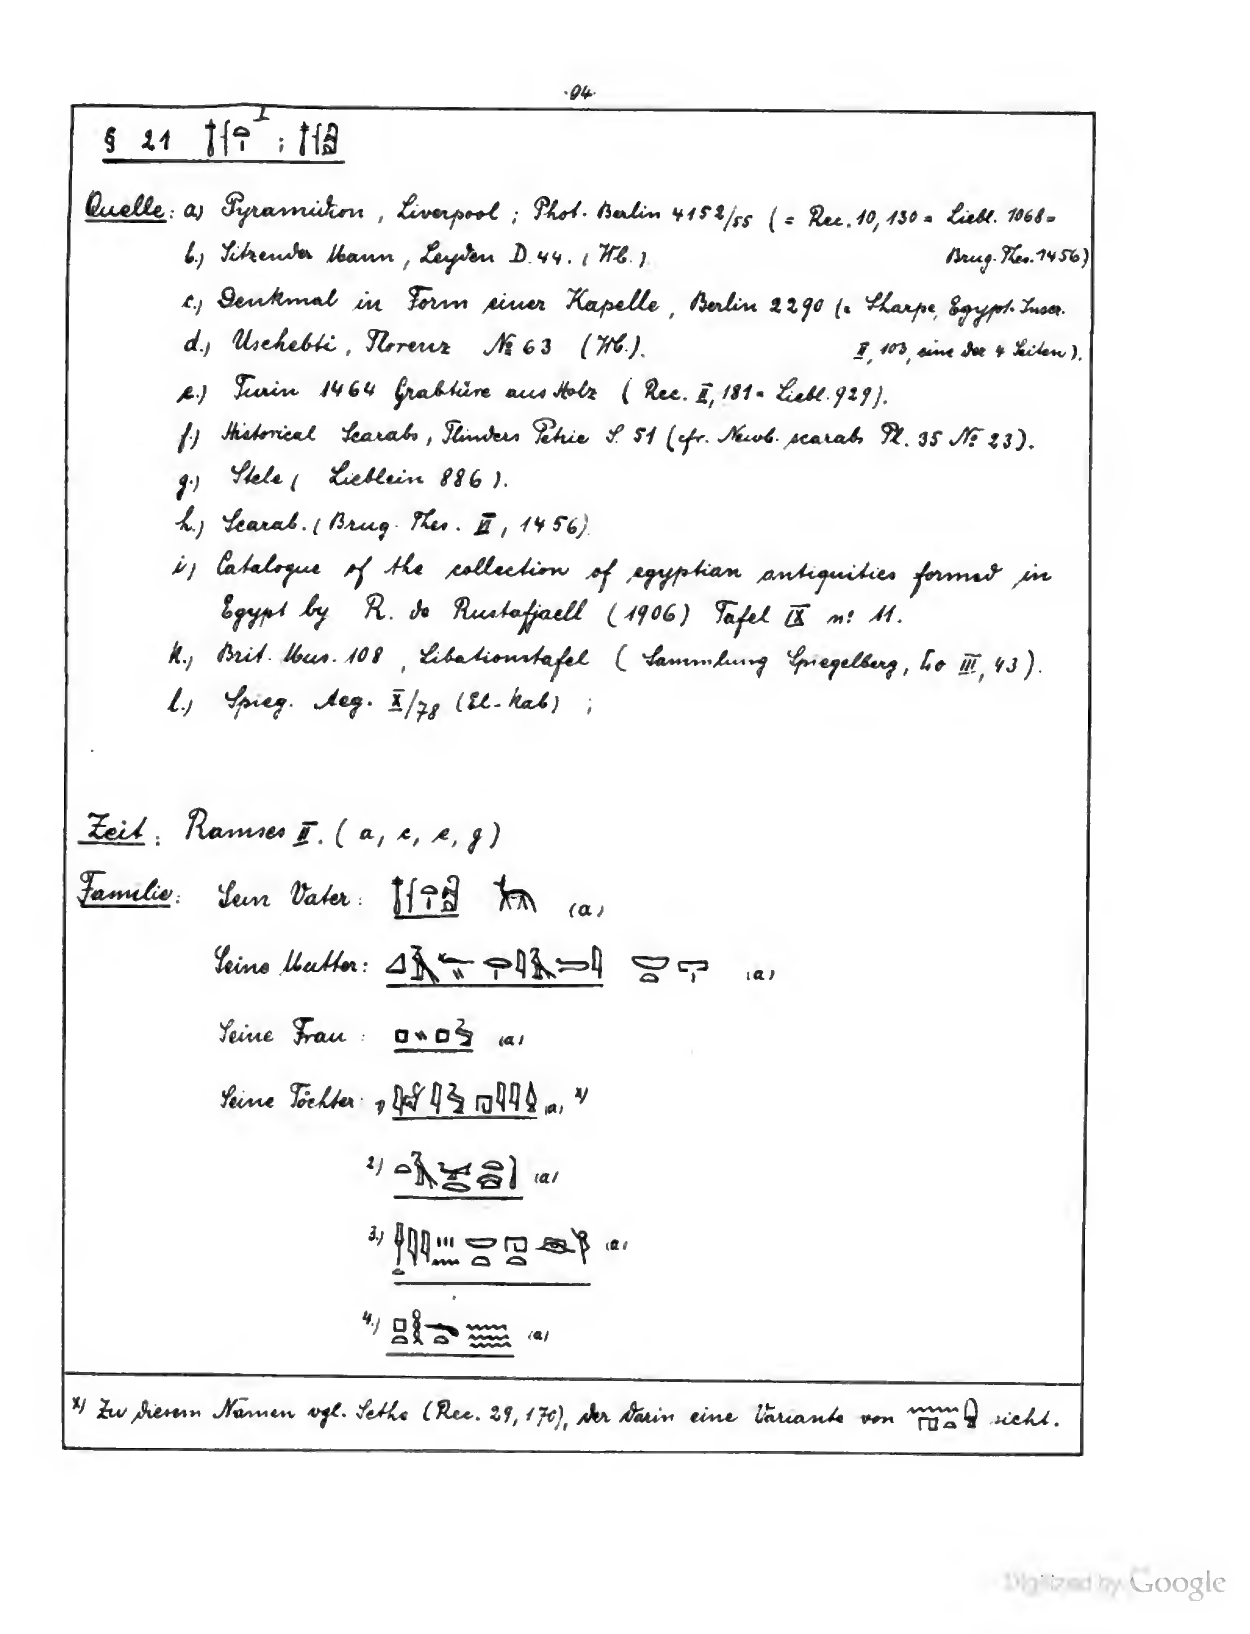 ·94·
§ 21 ;
Quelle: a) Pyramidion, Liverpool; Phot. Berlin 4152/55 (= Rec. 10, 130 = Liebl. 1068 =
Brug. Thes. 1456)
b.) Sitzender Mann, Leyden D. 44. (Wb.)
c.) Denkmal in Form einer Kapelle, Berlin 2290 (= Sharpe, Egypt. Inscr.
II, 103, eine der 4 Seiten).
d.) Uschebti, Florenz № 63 (Wb.).
e.) Turin 1464 Grabtüre aus Holz (Rec. II, 181 = Liebl. 929).
f.) Historical Scarabs, Flinders Petrie S. 51 (cfr. Newb. scarabs Pl. 35 № 23).
g.) Stele (Lieblein 886).
h.) Scarab. (Brug. Thes. VI, 1456)
i) Catalogue of the collection of egyptian antiquities formed in
Egypt by R. de Rustafjaell (1906) Tafel IX n: 11.
k.) Brit. Mus. 108, Libationstafel (Sammlung Spiegelberg, III, 43).
l.) Spieg. Aeg. X/78 (El-Kab) ;
Zeit: Ramses II. (a, c, e, g)
Familie: Sein Vater: (a)
Seine Mutter: (a)
Seine Frau: (a)
Seine Töchter: 1) (a) x)
2) (a)
3.) (a)
4.) (a)
x) Zu diesem Namen vgl. Sethe (Rec. 29, 170), der darin eine Variante von sieht.
Digitized by Google